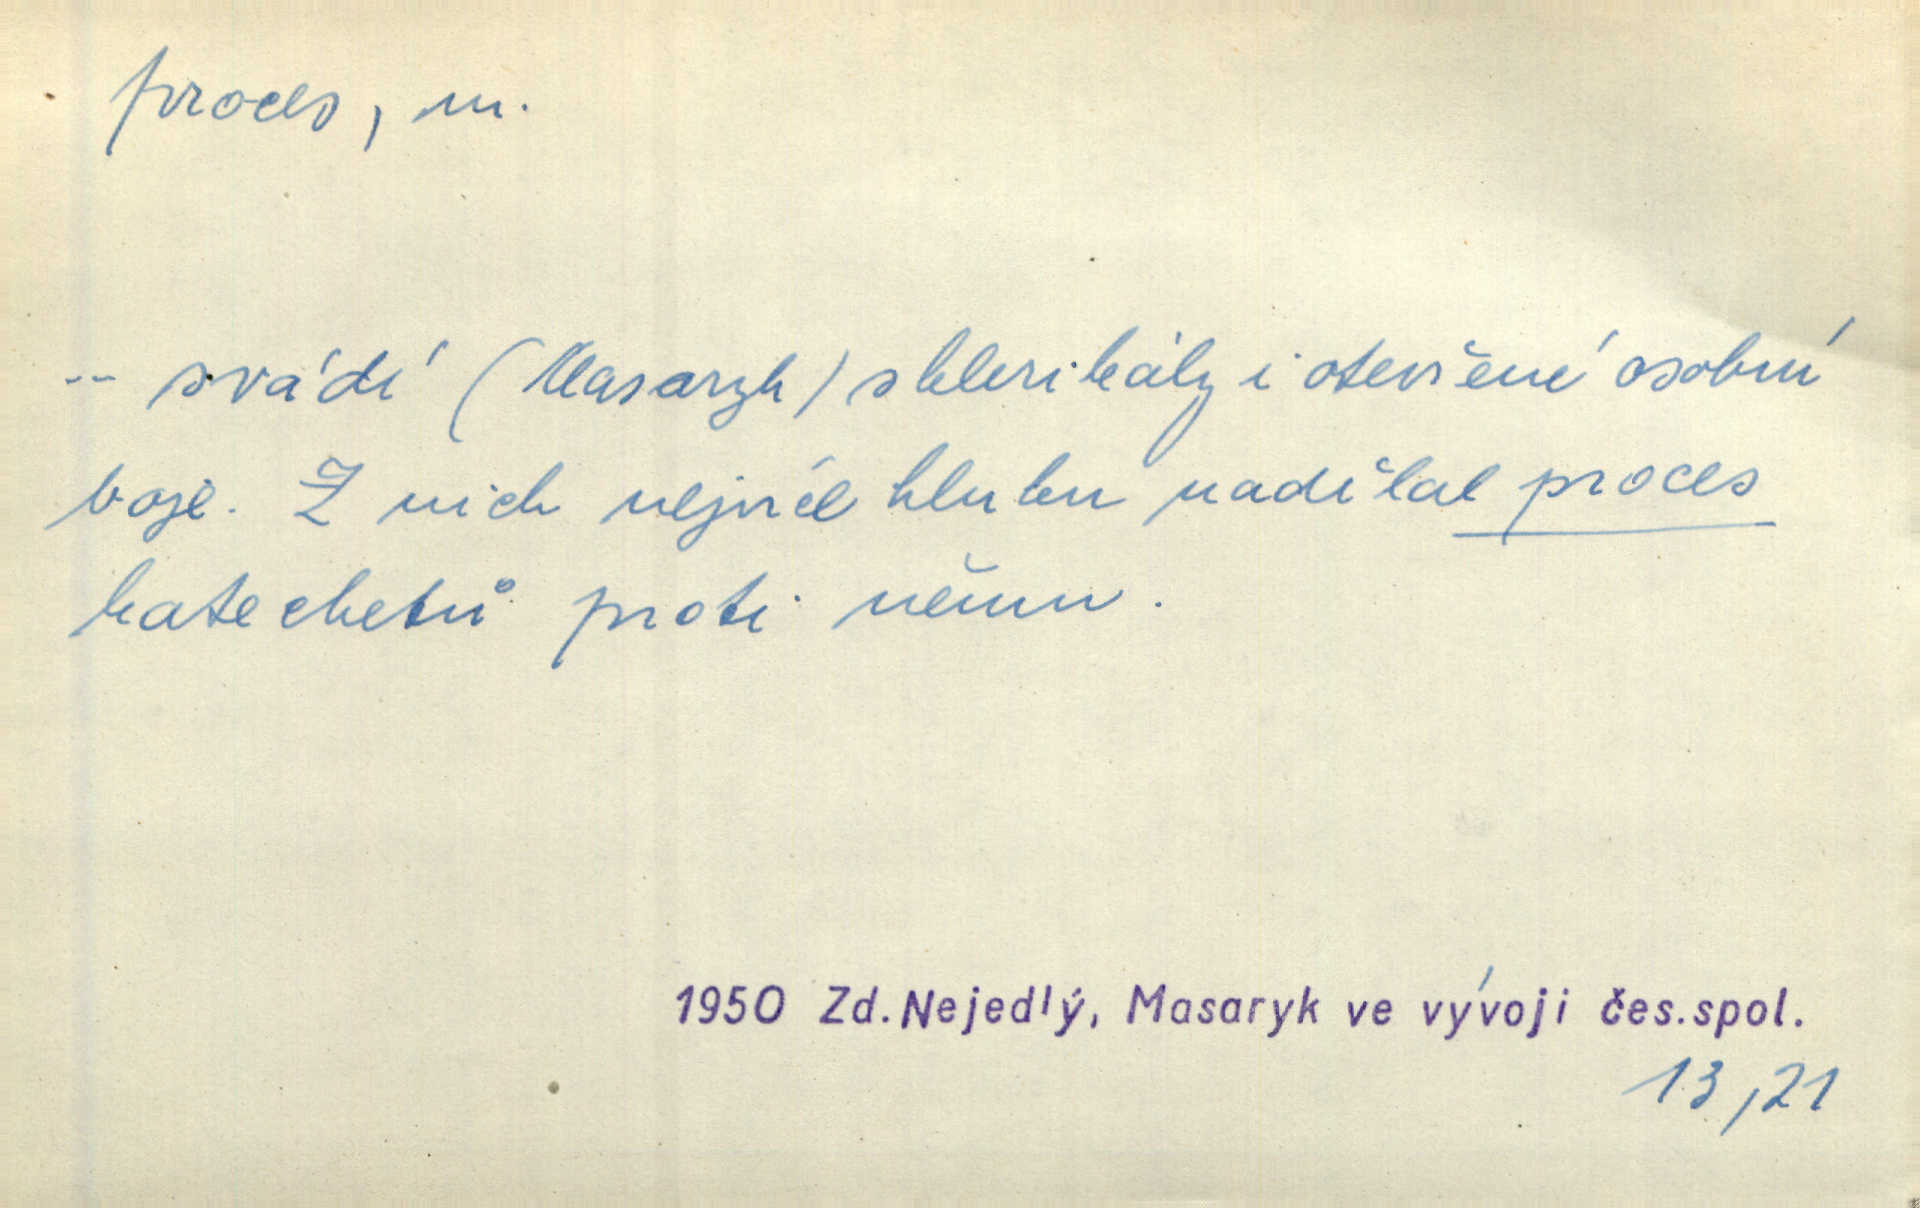 proces, m.
-- svádí (Masaryk) s klerikály i otevřené osobní
boje. Z nich nejvíce hluku nadělal proces
katechetů proti němu.
1950 Zd.Nejedlý, Masaryk ve vývoji čes.spol.
13,21